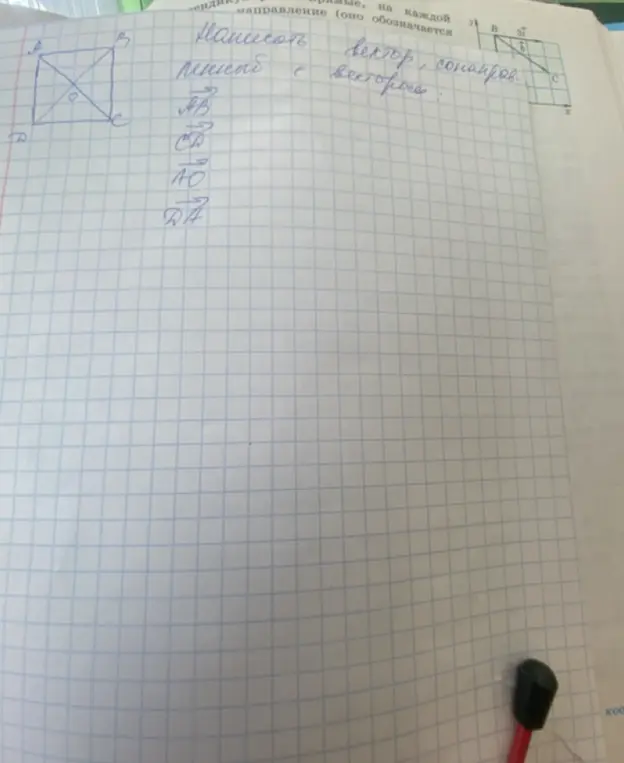 жные, на каждой
направление (оно обозначается
Написать вектор, сонаправ-
ленный с вектором:
AB
CD
AO
DA
A
B
O
D
C
B
C